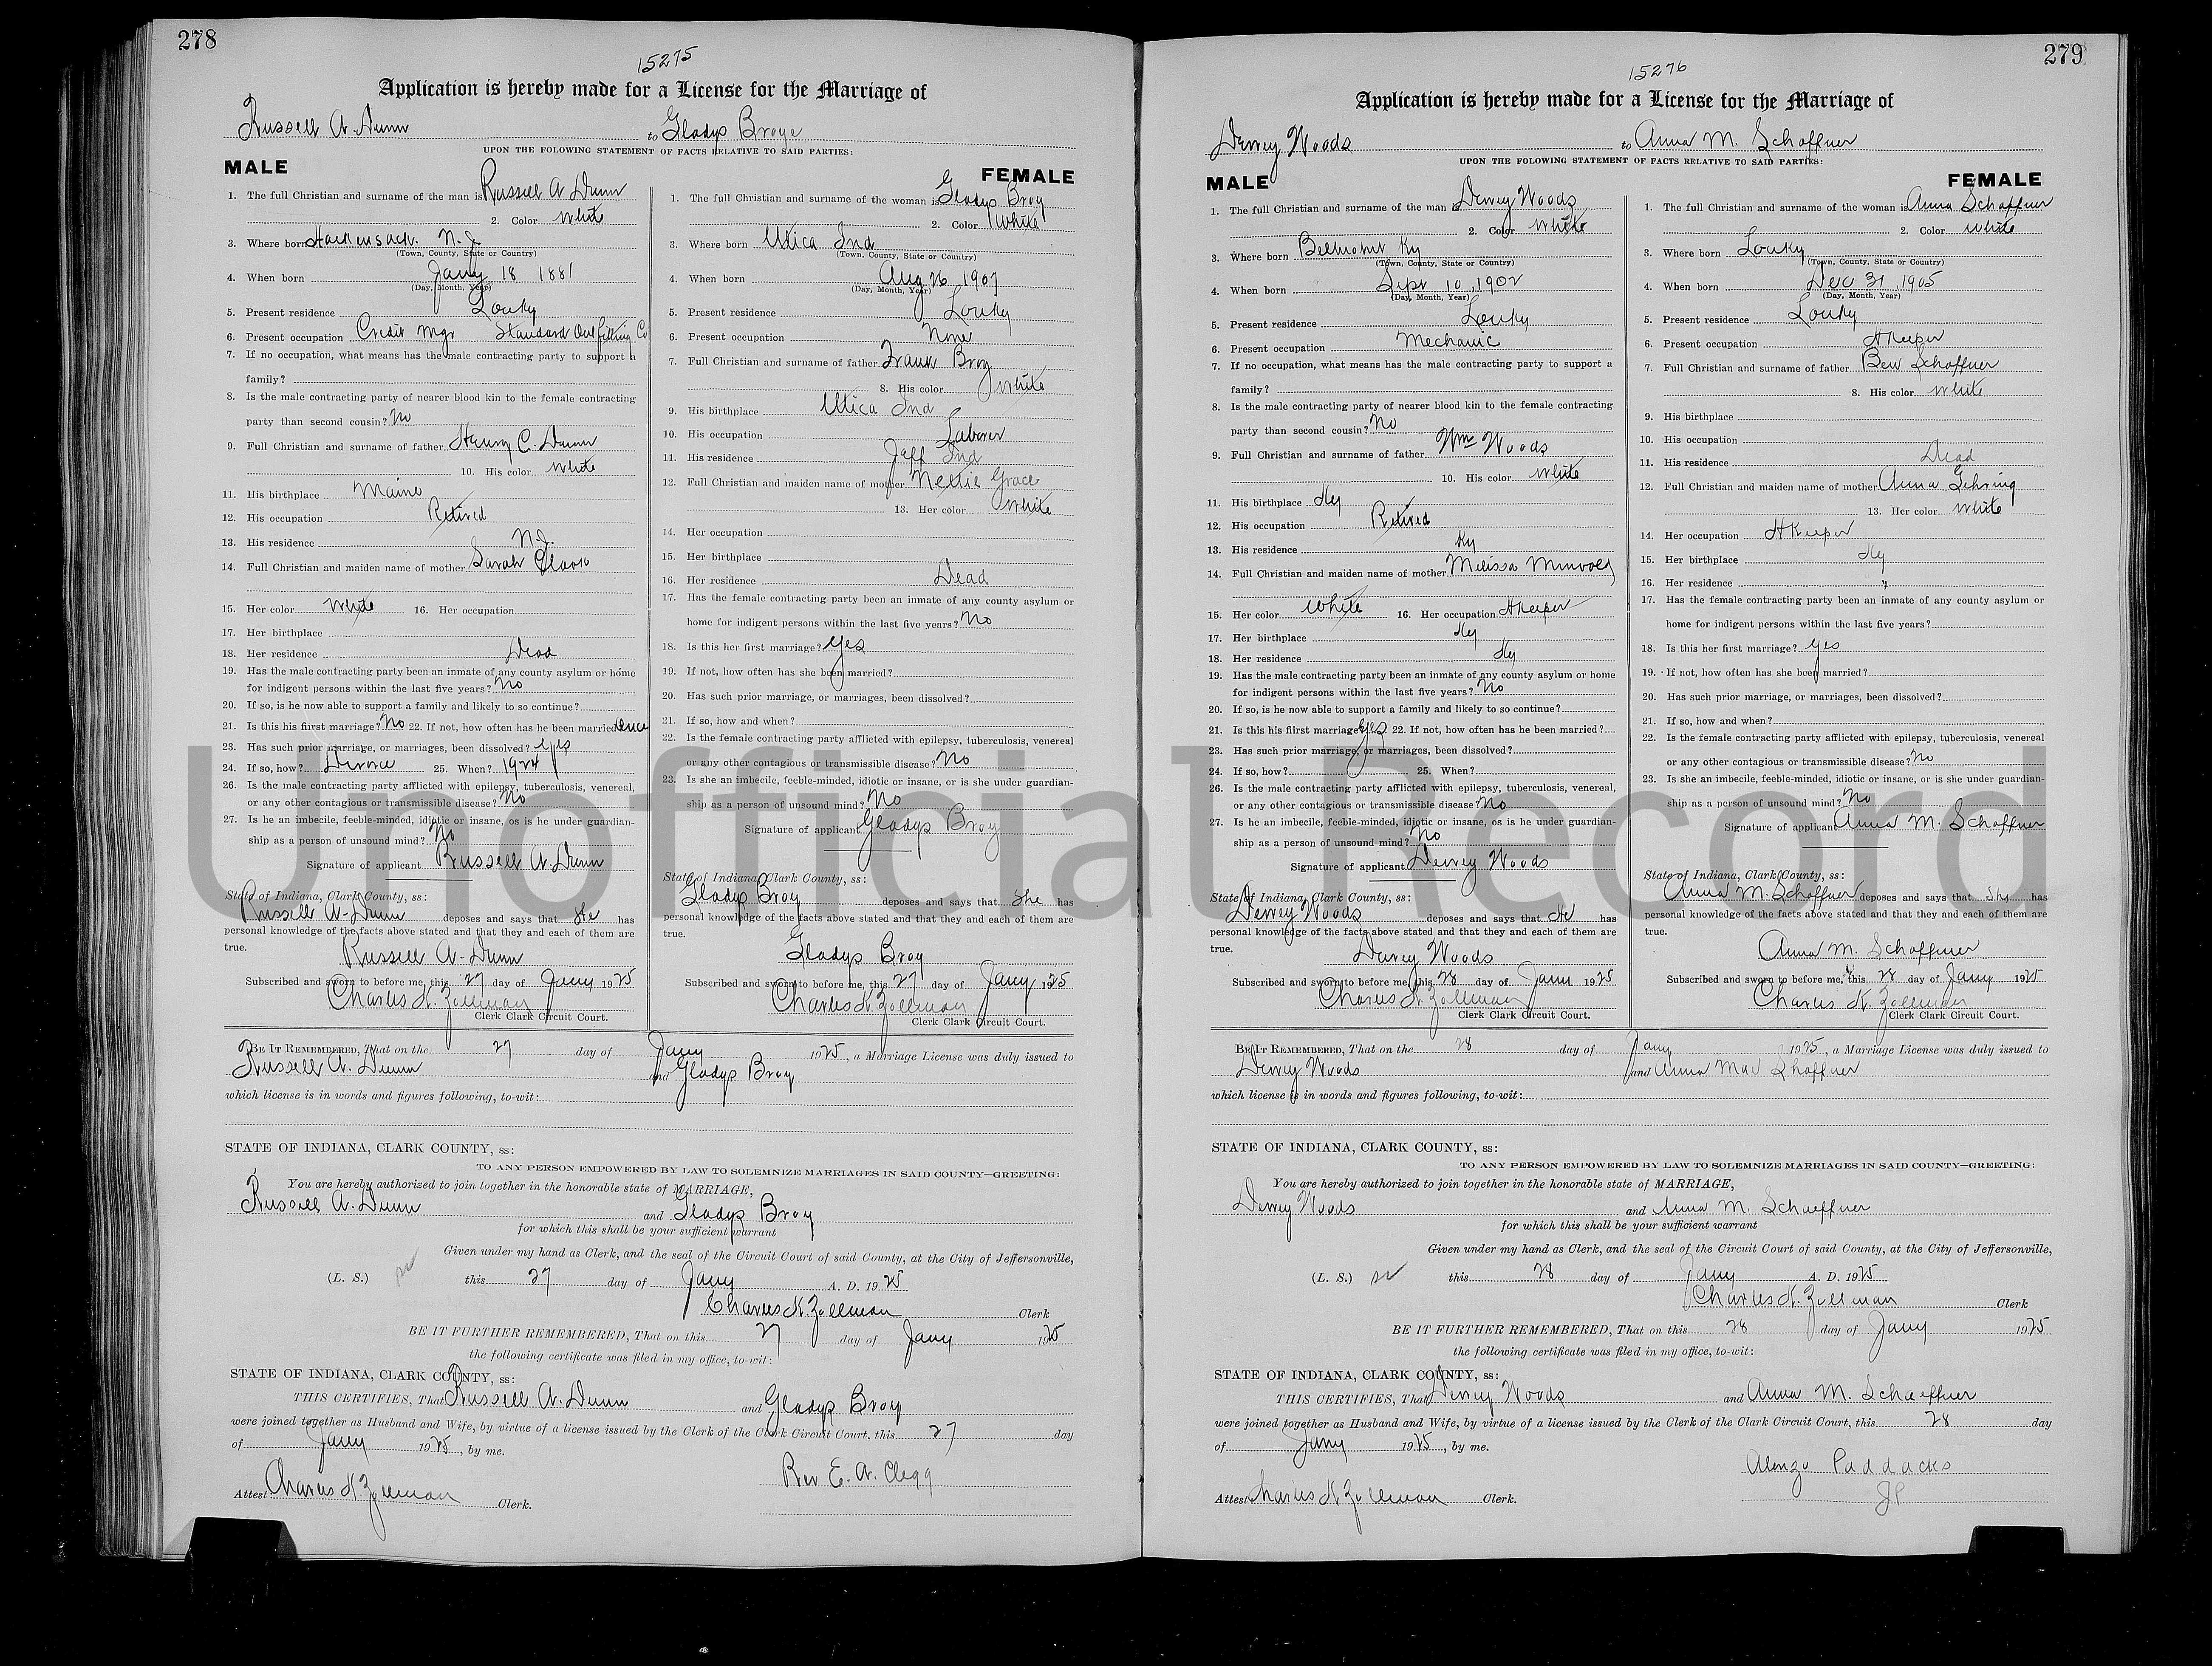 278
15275
Application is hereby made for a License for the Marriage of
Russell A Dunn to Gladys Broye
UPON THE FOLOWING STATEMENT OF FACTS RELATIVE TO SAID PARTIES:
MALE
1. The full Christian and surname of the man is Russell A Dunn
2. Color White
3. Where born Hackensack. N.J.
(Town, County, State or Country)
4. When born Jany 18 1881
(Day, Month, Year)
5. Present residence Louky
6. Present occupation Credit Mgr Standard Outfitting Co
7. If no occupation, what means has the male contracting party to support a
family?
8. Is the male contracting party of nearer blood kin to the female contracting
party than second cousin? No
9. Full Christian and surname of father Henry C. Dunn
10. His color White
11. His birthplace Maine
12. His occupation Retired
13. His residence N.J.
14. Full Christian and maiden name of mother Sarah
15. Her color White 16. Her occupation
17. Her birthplace
18. Her residence Dead
19. Has the male contracting party been an inmate of any county asylum or home
for indigent persons within the last five years? No
20. If so, is he now able to support a family and likely to so continue?
21. Is this his fiirst marriage? No 22. If not, how often has he been married Once
23. Has such prior marriage, or marriages, been dissolved? Yes
24. If so, how? Divorce 25. When? 1924
26. Is the male contracting party afflicted with epilepsy, tuberculosis, venereal,
or any other contagious or transmissible disease? No
27. Is he an imbecile, feeble-minded, idiotic or insane, os is he under guardian-
ship as a person of unsound mind? No
Signature of applicant Russell A Dunn
State of Indiana, Clark County, ss:
Russell A-Dunn deposes and says that He has
personal knowledge of the facts above stated and that they and each of them are
true.
Russell A-Dunn
Subscribed and sworn to before me, this 27 day of Jany 1925
Charles N. Zollman
Clerk Clark Circuit Court.
FEMALE
1. The full Christian and surname of the woman is Gladys Broy
2. Color White
3. Where born Utica Ind
(Town, County, State or Country)
4. When born Aug 26, 1907
(Day, Month, Year)
5. Present residence Louky
6. Present occupation None
7. Full Christian and surname of father Frank Broy
8. His color White
9. His birthplace Utica Ind
10. His occupation Laborer
11. His residence Jeff Ind
12. Full Christian and maiden name of mother Nettie Grace
13. Her color White
14. Her occupation
15. Her birthplace
16. Her residence Dead
17. Has the female contracting party been an inmate of any county asylum or
home for indigent persons within the last five years? No
18. Is this her first marriage? Yes
19. If not, how often has she been married?
20. Has such prior marriage, or marriages, been dissolved?
21. If so, how and when?
22. Is the female contracting party afflicted with epilepsy, tuberculosis, venereal
or any other contagious or transmissible disease? No
23. Is she an imbecile, feeble-minded, idiotic or insane, or is she under guardian-
ship as a person of unsound mind? No
Signature of applicant Gladys Broy
State of Indiana, Clark County, ss:
Gladys Broy deposes and says that She has
personal knowledge of the facts above stated and that they and each of them are
true.
Gladys Broy
Subscribed and sworn to before me, this 27 day of Jany 1925
Charles N. Zollman
Clerk Clark Circuit Court.
BE IT REMEMBERED, That on the 27 day of Jany 1925, a Marriage License was duly issued to
Russell A. Dunn and Gladys Broy
which license is in words and figures following, to-wit:
STATE OF INDIANA, CLARK COUNTY, ss:
TO ANY PERSON EMPOWERED BY LAW TO SOLEMNIZE MARRIAGES IN SAID COUNTY—GREETING:
You are hereby authorized to join together in the honorable state of MARRIAGE,
Russell A. Dunn and Gladys Broy
for which this shall be your sufficient warrant
Given under my hand as Clerk, and the seal of the Circuit Court of said County, at the City of Jeffersonville,
(L. S.) this 27 day of Jany A. D. 1925
Charles N. Zollman Clerk
BE IT FURTHER REMEMBERED, That on this 27 day of Jany 1925
the following certificate was filed in my office, to-wit:
STATE OF INDIANA, CLARK COUNTY, ss:
THIS CERTIFIES, That Russell A. Dunn and Gladys Broy
were joined together as Husband and Wife, by virtue of a license issued by the Clerk of the Clark Circuit Court, this 27 day
of Jany 1925, by me.
Rev E. A. Clegg
Attest Charles N Zollman Clerk.
279
15276
Application is hereby made for a License for the Marriage of
Dewey Woods to Anna M. Schaffner
UPON THE FOLOWING STATEMENT OF FACTS RELATIVE TO SAID PARTIES:
MALE
1. The full Christian and surname of the man is Dewey Woods
2. Color White
3. Where born Bellmont Ky
(Town, County, State or Country)
4. When born Sept 10, 1902
(Day, Month, Year)
5. Present residence Louky
6. Present occupation Mechanic
7. If no occupation, what means has the male contracting party to support a
family?
8. Is the male contracting party of nearer blood kin to the female contracting
party than second cousin? No
9. Full Christian and surname of father Wm Woods
10. His color White
11. His birthplace Ky
12. His occupation Retired
13. His residence Ky
14. Full Christian and maiden name of mother Melissa
15. Her color White 16. Her occupation HKeeper
17. Her birthplace Ky
18. Her residence Ky
19. Has the male contracting party been an inmate of any county asylum or home
for indigent persons within the last five years? No
20. If so, is he now able to support a family and likely to so continue?
21. Is this his fiirst marriage Yes 22. If not, how often has he been married?
23. Has such prior marriage, or marriages, been dissolved?
24. If so, how? 25. When?
26. Is the male contracting party afflicted with epilepsy, tuberculosis, venereal,
or any other contagious or transmissible disease? No
27. Is he an imbecile, feeble-minded, idiotic or insane, os is he under guardian-
ship as a person of unsound mind? No
Signature of applicant Dewey Woods
State of Indiana, Clark County, ss:
Dewey Woods deposes and says that He has
personal knowledge of the facts above stated and that they and each of them are
true.
Dewey Woods
Subscribed and sworn to before me, this 28 day of Jany 1925
Charles N. Zollman
Clerk Clark Circuit Court.
FEMALE
1. The full Christian and surname of the woman is Anna Schaffner
2. Color White
3. Where born Louky
(Town, County, State or Country)
4. When born Dec 31, 1905
(Day, Month, Year)
5. Present residence Louky
6. Present occupation HKeeper
7. Full Christian and surname of father Ben Schaffner
8. His color White
9. His birthplace
10. His occupation
11. His residence Dead
12. Full Christian and maiden name of mother Anna Gehring
13. Her color White
14. Her occupation HKeeper
15. Her birthplace Ky
16. Her residence "
17. Has the female contracting party been an inmate of any county asylum or
home for indigent persons within the last five years?
18. Is this her first marriage? Yes
19. If not, how often has she been married?
20. Has such prior marriage, or marriages, been dissolved?
21. If so, how and when?
22. Is the female contracting party afflicted with epilepsy, tuberculosis, venereal
or any other contagious or transmissible disease? No
23. Is she an imbecile, feeble-minded, idiotic or insane, or is she under guardian-
ship as a person of unsound mind? No
Signature of applicant Anna M. Schaffner
State of Indiana, Clark County, ss:
Anna M. Schaffner deposes and says that She has
personal knowledge of the facts above stated and that they and each of them are
true.
Anna M. Schaffner
Subscribed and sworn to before me, this 28 day of Jany 1925
Charles N. Zollman
Clerk Clark Circuit Court.
BE IT REMEMBERED, That on the 28 day of Jany 1925, a Marriage License was duly issued to
Dewey Woods and Anna Mae Shaffner
which license is in words and figures following, to-wit:
STATE OF INDIANA, CLARK COUNTY, ss:
TO ANY PERSON EMPOWERED BY LAW TO SOLEMNIZE MARRIAGES IN SAID COUNTY—GREETING:
You are hereby authorized to join together in the honorable state of MARRIAGE,
Dewey Woods and Anna M. Schaeffner
for which this shall be your sufficient warrant
Given under my hand as Clerk, and the seal of the Circuit Court of said County, at the City of Jeffersonville,
(L. S.) this 28 day of Jany A. D. 1925
Charles N. Zollman Clerk
BE IT FURTHER REMEMBERED, That on this 28 day of Jany 1925
the following certificate was filed in my office, to-wit:
STATE OF INDIANA, CLARK COUNTY, ss:
THIS CERTIFIES, That Dewey Woods and Anna M. Schaeffner
were joined together as Husband and Wife, by virtue of a license issued by the Clerk of the Clark Circuit Court, this 28 day
of Jany 1925, by me.
Alonzo Paddacks
JP
Attest Charles N Zollman Clerk.
Unofficial Record